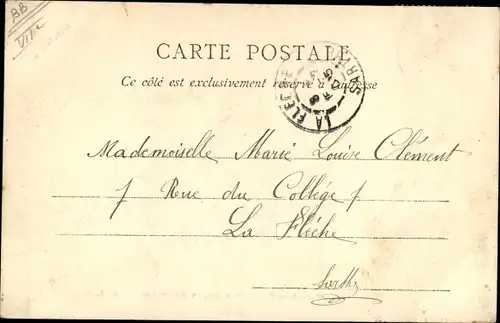 BB
CARTE POSTALE
Ce côté est exclusivement réservé à l'adresse
LA FLÈCHE SARTHE
Mademoiselle Marie Louise Clément
7 Rue du Collège 7
La Flèche
Sarthe